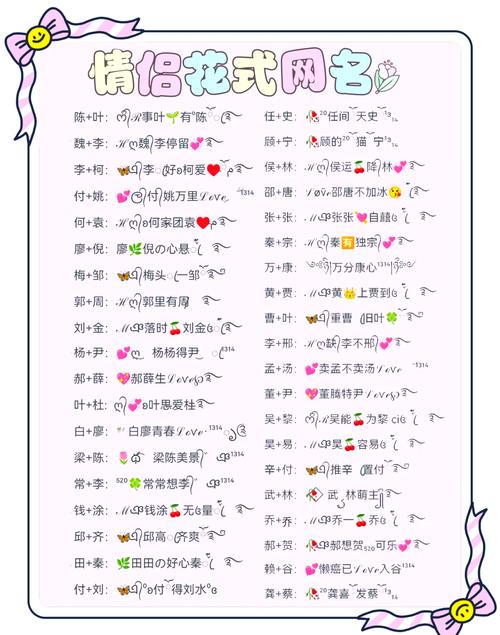 情侣花式网名
陈+叶: ℛ事叶🌱有°陈
魏+李: ℋ魏李停留💕
李+柯: 🦋李 好ʚ柯爱❤️
付+姚: 💕付姚万里ℒℴѵℯ ¹³¹⁴
何+袁: ℋʚ何家团袁❤️
廖+倪: 廖🌿倪の心悬
梅+邹: 🦋梅头 一邹
郭+周: ℋ郭里有周
刘+金: ℳ落时🍒刘金
杨+尹: 💕 杨杨得尹 ¹³¹⁴
郝+薛: 💖郝薛生ℒℴѵℯ
叶+杜: 💕ʚ叶愚爱杜
白+廖: 白廖青春ℒℴѵℯ·¹³¹⁴
梁+陈: 🌷 梁陈美景 ¹³¹⁴
常+李: ⁵²⁰🍀常常想李 ¹³¹⁴
钱+涂: ℳ钱涂🍒无ɞ量
邱+齐: 🦋邱高 齐爽
田+秦: 🌿田田の好心秦
付+刘: 🦋°ʚ付得刘水°ɞ
任+史: 🥀²⁰任间 天史 ¹³¹⁴
顾+宁: 🥀顾的²⁰ 猫 宁¹³¹⁴
侯+林: ℋ侯运🍒降林💕
邵+唐: ℒℴѵℯ邵唐不加冰😘
张+张: ℳ张张💘自囍
秦+宗: ℋ秦🈶独宗💕
万+康: 万分康心¹³¹⁴
黄+贾: ℳ黄👑上贾到
曹+叶: 🦋重曹 旧叶🍀
李+邢: ℋ缺李不邢💕
孟+汤: 💕卖孟不卖汤ℒℴѵℯ ¹³¹⁴
董+尹: 💖董腾特尹ℒℴѵℯ
吴+黎: ℛ吴能🍒为黎
吴+易: ℳ吴🍒容易
辛+付: 🦋推辛 置付
武+林: 🥀武 林萌主
乔+乔: ℳ乔一🍒乔
郝+贺: 🥀郝想贺₅₂₀可乐💕
赖+谷: 💕懒癌已ℒℴѵℯ入谷¹³¹⁴
龚+蔡: 🥀²⁰龚喜 发蔡 ¹³¹⁴